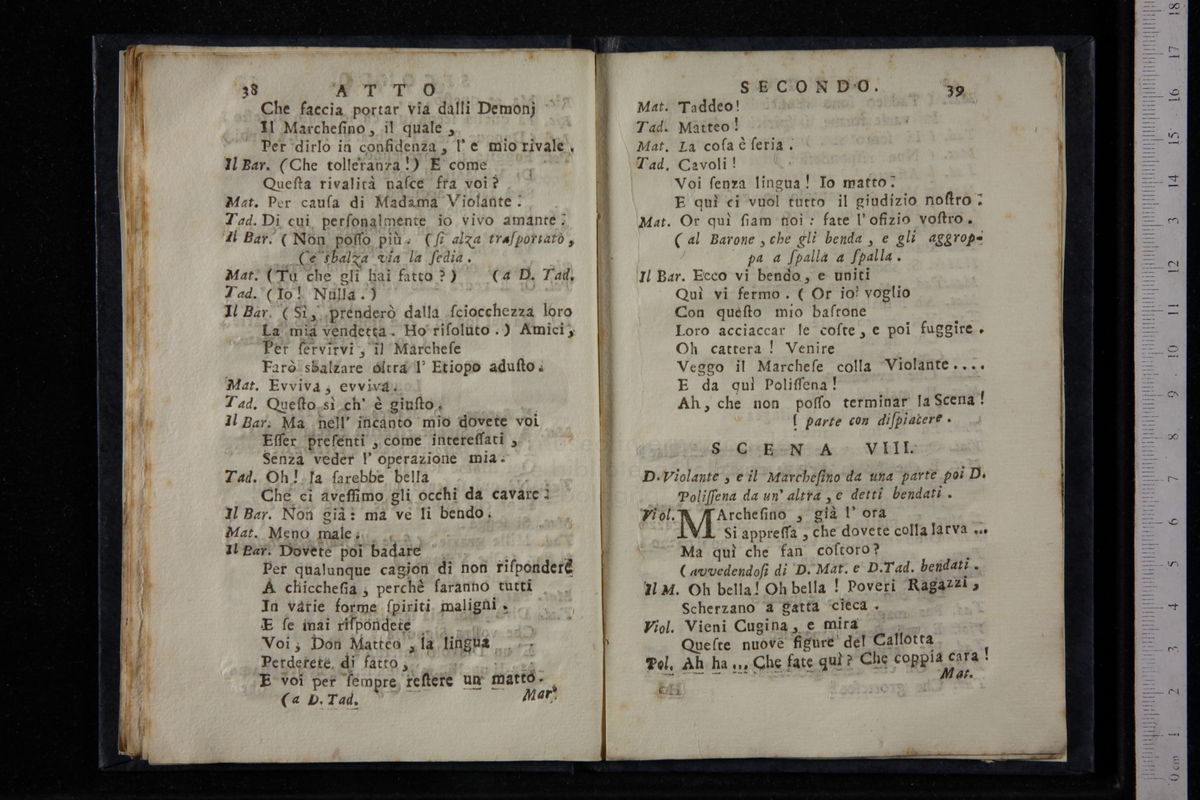 38 ATTO
Che faccia portar via dalli Demonj
Il Marcheſino, il quale,
Per dirlo in confidenza, l'e mio rivale.
Il Bar. (Che tolleranza!) E come
Queſta rivalità naſce fra voi?
Mat. Per cauſa di Madama Violante.
Tad. Di cui perſonalmente io vivo amante.
Il Bar. (Non poſſo più. (ſi alza traſportato,
(e sbalza via la ſedia.
Mat. (Tu che gli hai fatto?) (a D. Tad.
Tad. (Io! Nulla.)
Il Bar. (Sì, prenderò dalla ſciocchezza loro
La mia vendetta. Ho riſoluto.) Amici,
Per ſervirvi, il Marcheſe
Farò sbalzare oltra l'Etiopo aduſto.
Mat. Evviva, evviva.
Tad. Queſto sì ch' è giuſto.
Il Bar. Ma nell' incanto mio dovete voi
Eſſer preſenti, come intereſſati,
Senza veder l'operazione mia.
Tad. Oh! la ſarebbe bella
Che ci aveſſimo gli occhi da cavare.
Il Bar. Non già: ma ve li bendo.
Mat. Meno male.
Il Bar. Dovete poi badare
Per qualunque cagion di non riſpondere
A chiccheſia, perchè ſaranno tutti
In varie forme ſpiriti maligni.
E ſe mai riſpondete
Voi, Don Matteo, la lingua
Perderete di fatto,
E voi per ſempre reſtere un matto.
(a D. Tad. Mat.
SECONDO. 39
Mat. Taddeo!
Tad. Matteo!
Mat. La coſa è ſeria.
Tad. Cavoli!
Voi ſenza lingua! Io matto.
E quì ci vuol tutto il giudizio noſtro.
Mat. Or quì ſiam noi: fate l'ofizio voſtro.
(al Barone, che gli benda, e gli aggrop-
pa a ſpalla a ſpalla.
Il Bar. Ecco vi bendo, e uniti
Quì vi fermo. (Or io voglio
Con queſto mio baſtone
Loro acciaccar le coſte, e poi fuggire.
Oh cattera! Venire
Veggo il Marcheſe colla Violante....
E da quì Poliſſena!
Ah, che non poſſo terminar la Scena!
( parte con diſpiacere.
SCENA VIII.
D. Violante, e il Marcheſino da una parte poi D.
Poliſſena da un' altra, e detti bendati.
Viol. MArcheſino, già l'ora
Si appreſſa, che dovete colla larva ...
Ma quì che fan coſtoro?
(avvedendoſi di D. Mat. e D. Tad. bendati.
Il M. Oh bella! Oh bella! Poveri Ragazzi,
Scherzano a gatta cieca.
Viol. Vieni Cugina, e mira
Queſte nuove figure del Callotta
Pol. Ah ha ... Che fate quì? Che coppia cara!
Mat.